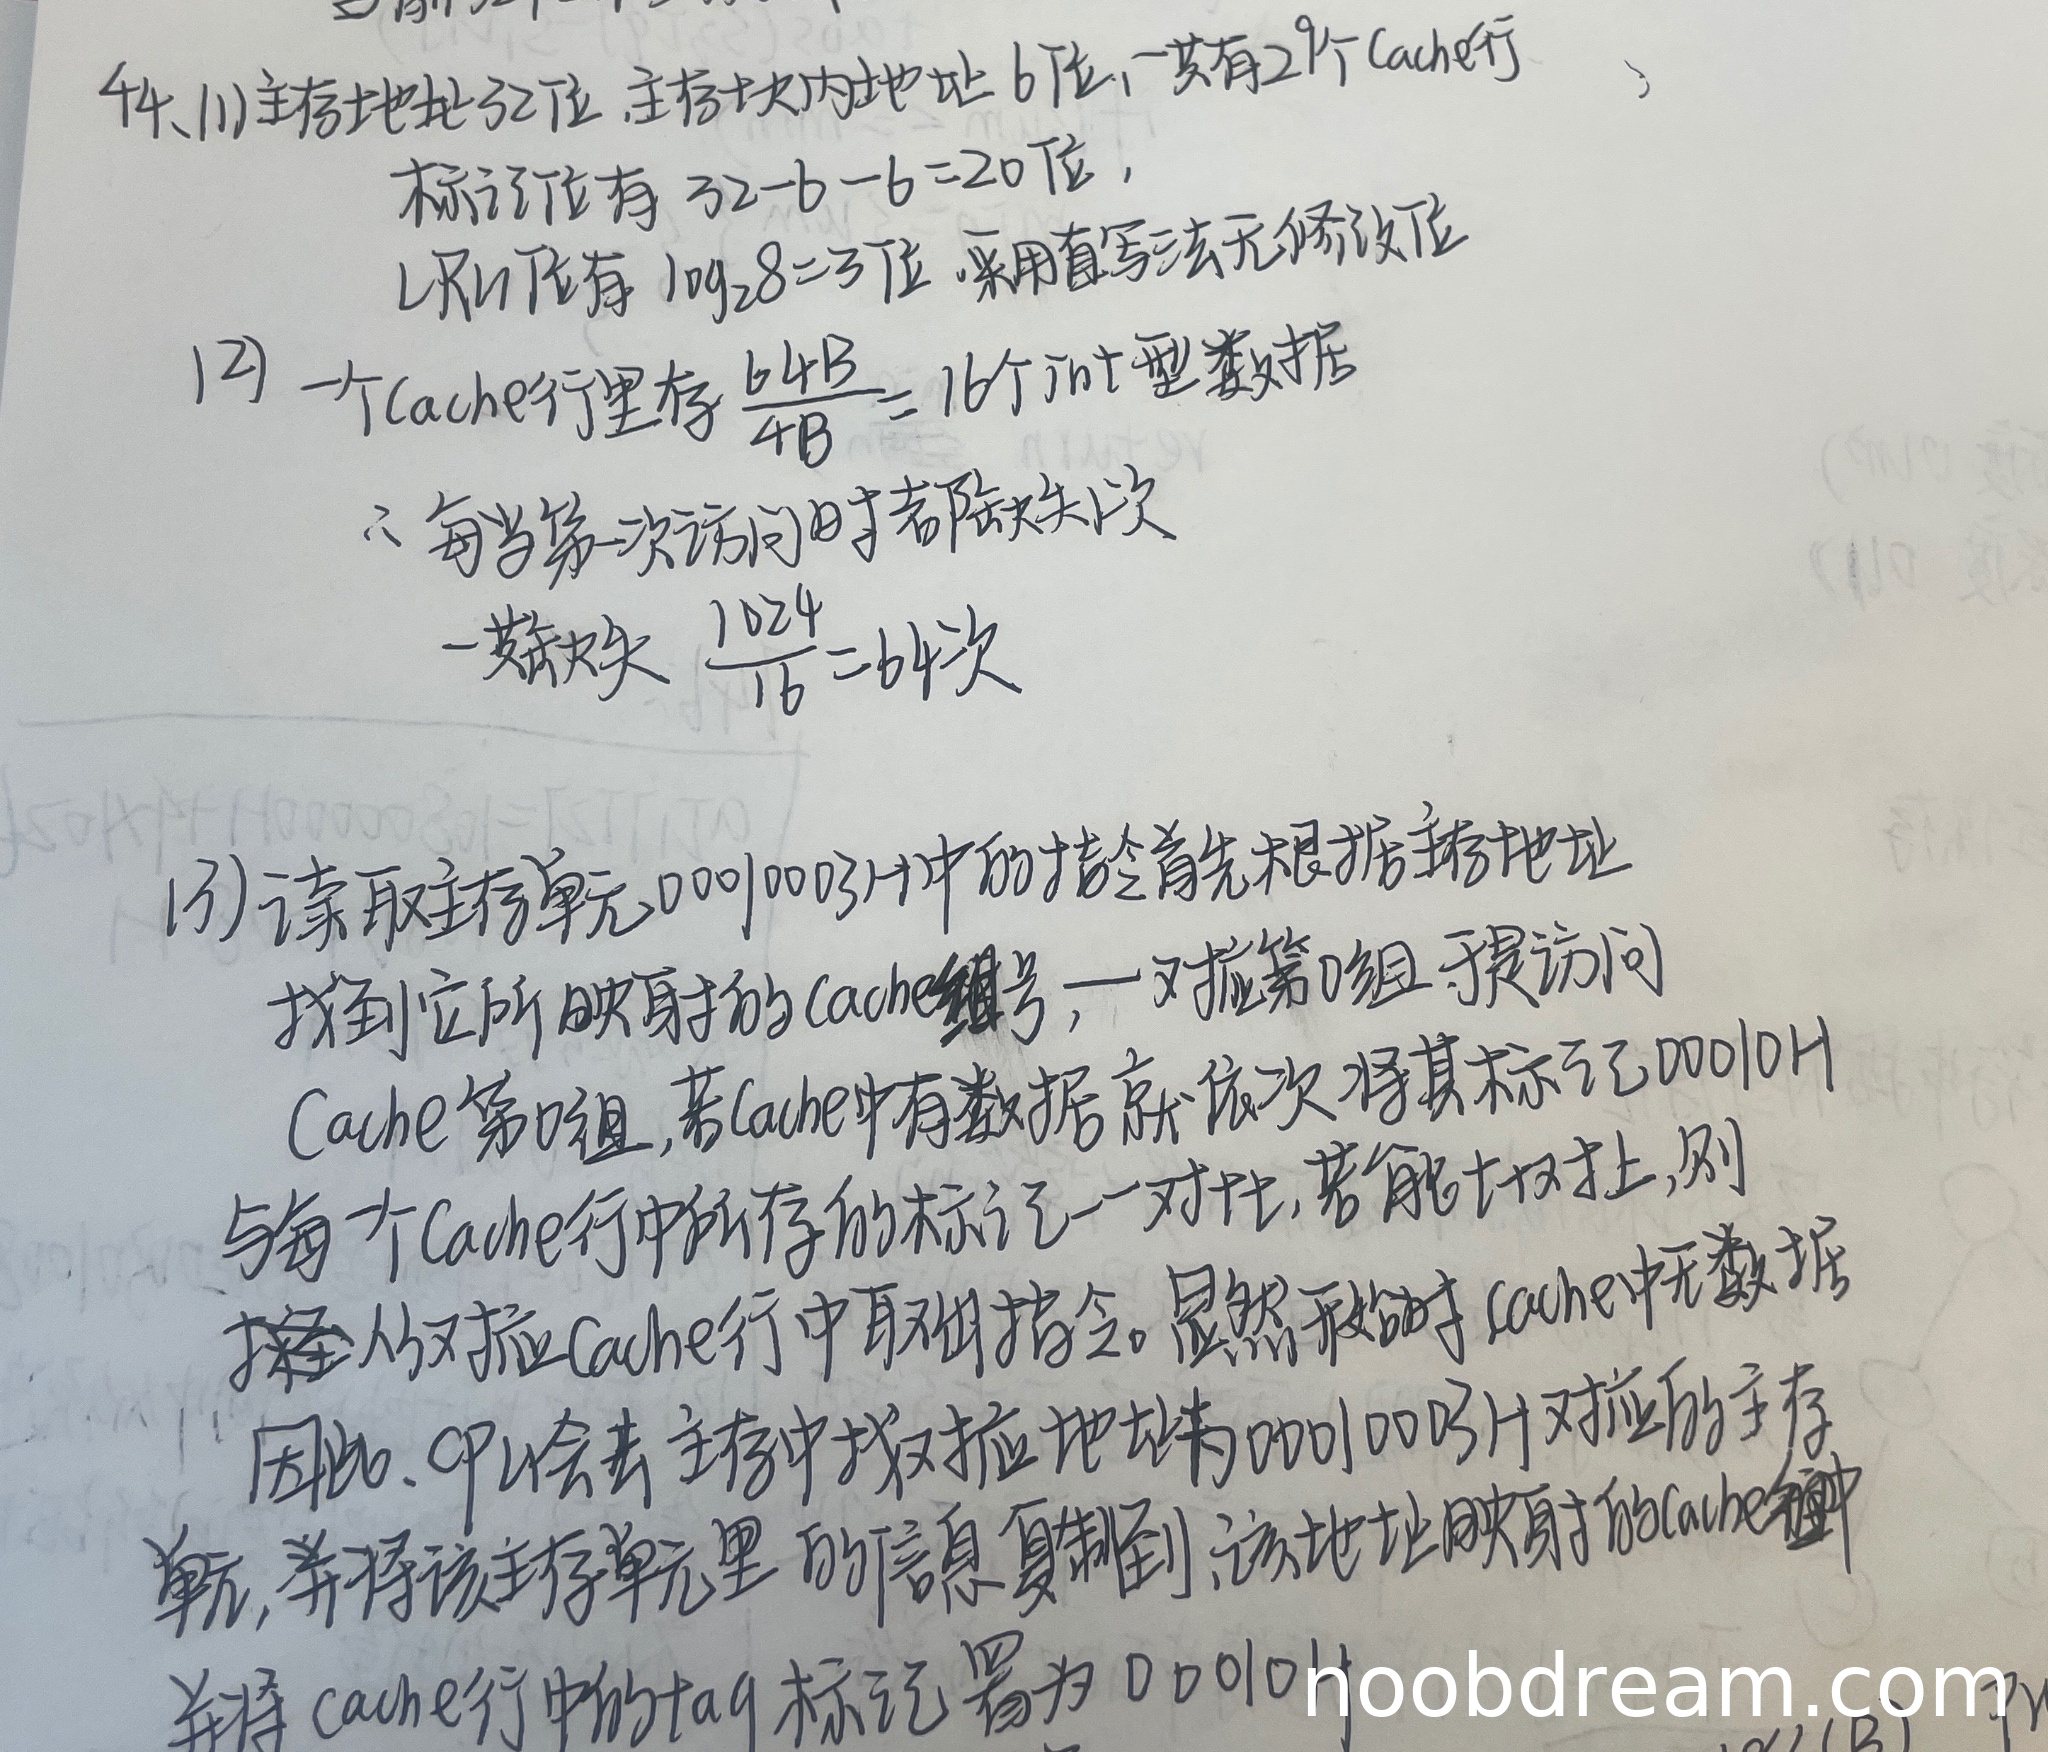 44、(1)主存地址32位,主存块内地址6位,一共有2^9个Cache行
标记位有 32-6-6=20位,
LRU位有 log₂8=3位,采用直写法无修改位
(2) 一个Cache行里存 64B/4B = 16个int型数据
∴ 每当第一次访问时都会缺失1次
一共缺失 1024/16 =64次
(3)读取主存单元00010003H中的指令首先根据主存地址
找到它所映射的Cache组号,一对应第0组,于是访问
Cache第0组,若Cache中有数据就依次将其标记00010H
与每一个Cache行中所存的标记一一对比,若能比对上,则
从对应Cache行中取出指令。显然开始时Cache中无数据
因此,CPU会去主存中找对应地址为00010003H对应的主存
单元,并将该主存单元里的信息复制到该地址映射的Cache组中
并将Cache行中的tag标记置为00010H
noobdream.com